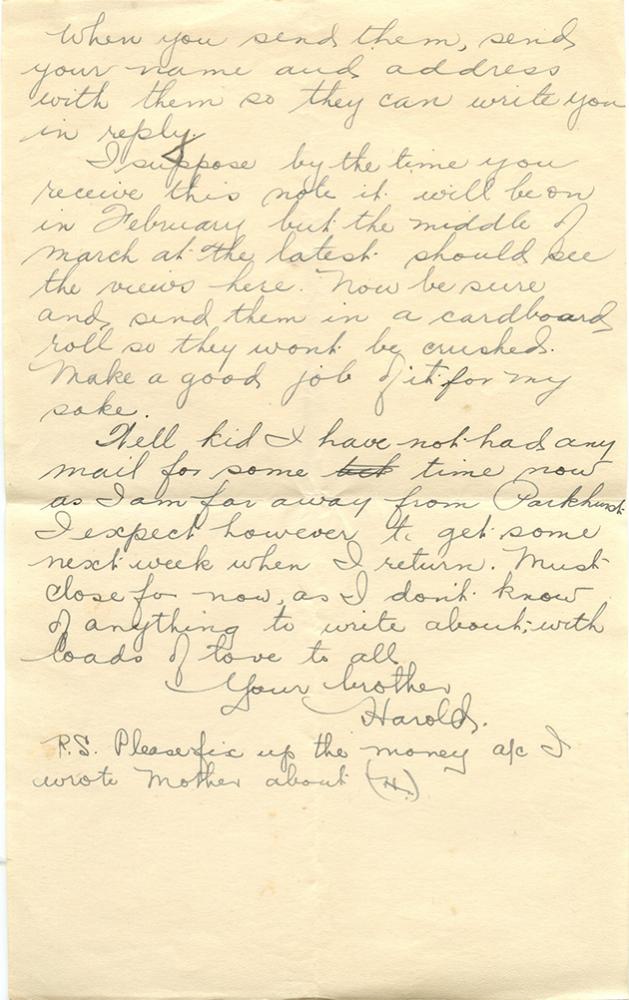 When you send them, send
your name and address
with them so they can write you
in reply.
I suppose by the time you
receive this note it will be on
in February but the middle of
march at the latest should see
the views here. Now be sure
and send them in a cardboard
roll so they wont be crushed.
Make a good job of it for my
sake.
Well kid I have not had any
mail for some time now
as I am far away from Parkhurst
I expect however to get some
next week when I return. Must
close for now, as I don't know
of anything to write about; with
loads of love to all
Your brother
Harold.
P.S. Please fix up the money a/c I
wrote Mother about (H.)